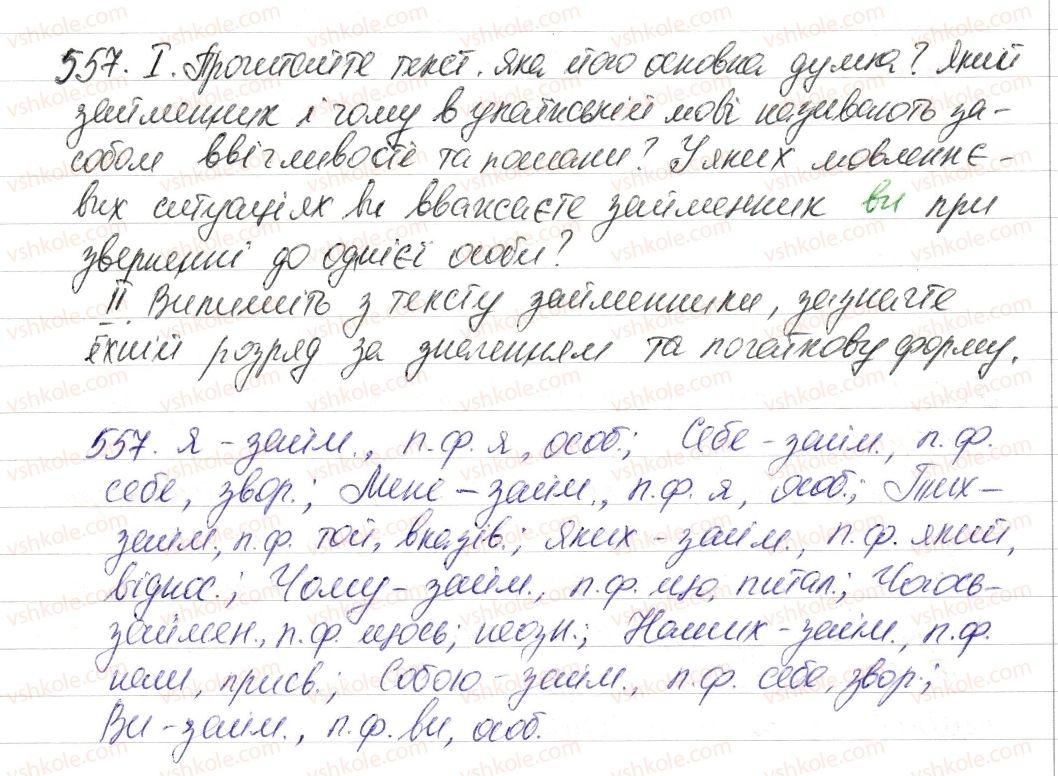 557. І. Прочитайте текст. Яка його основна думка? Який
займенник і чому в українській мові називають за-
собом ввічливості та пошани? У яких мовленнє-
вих ситуаціях ви вважаєте займенник ви при
звертенні до однієї особи?
ІІ. Випишіть з тексту займенники, зазначте
їхній розряд за значенням та початкову форму.
557. Я - займ., п.ф. я, особ.; Себе - займ., п.ф.
себе, звор.; Мене - займ., п.ф. я, особ.; Тих -
займ., п.ф. той, вказів.; Яких - займ., п.ф. який,
віднос.; Чому - займ., п.ф. що, питал.; Чогось -
займен., п.ф. щось; неозн.; Наших - займ., п.ф.
наш, присв.; Собою - займ., п.ф. себе, звор.;
Ви - займ., п.ф. ви, особ.